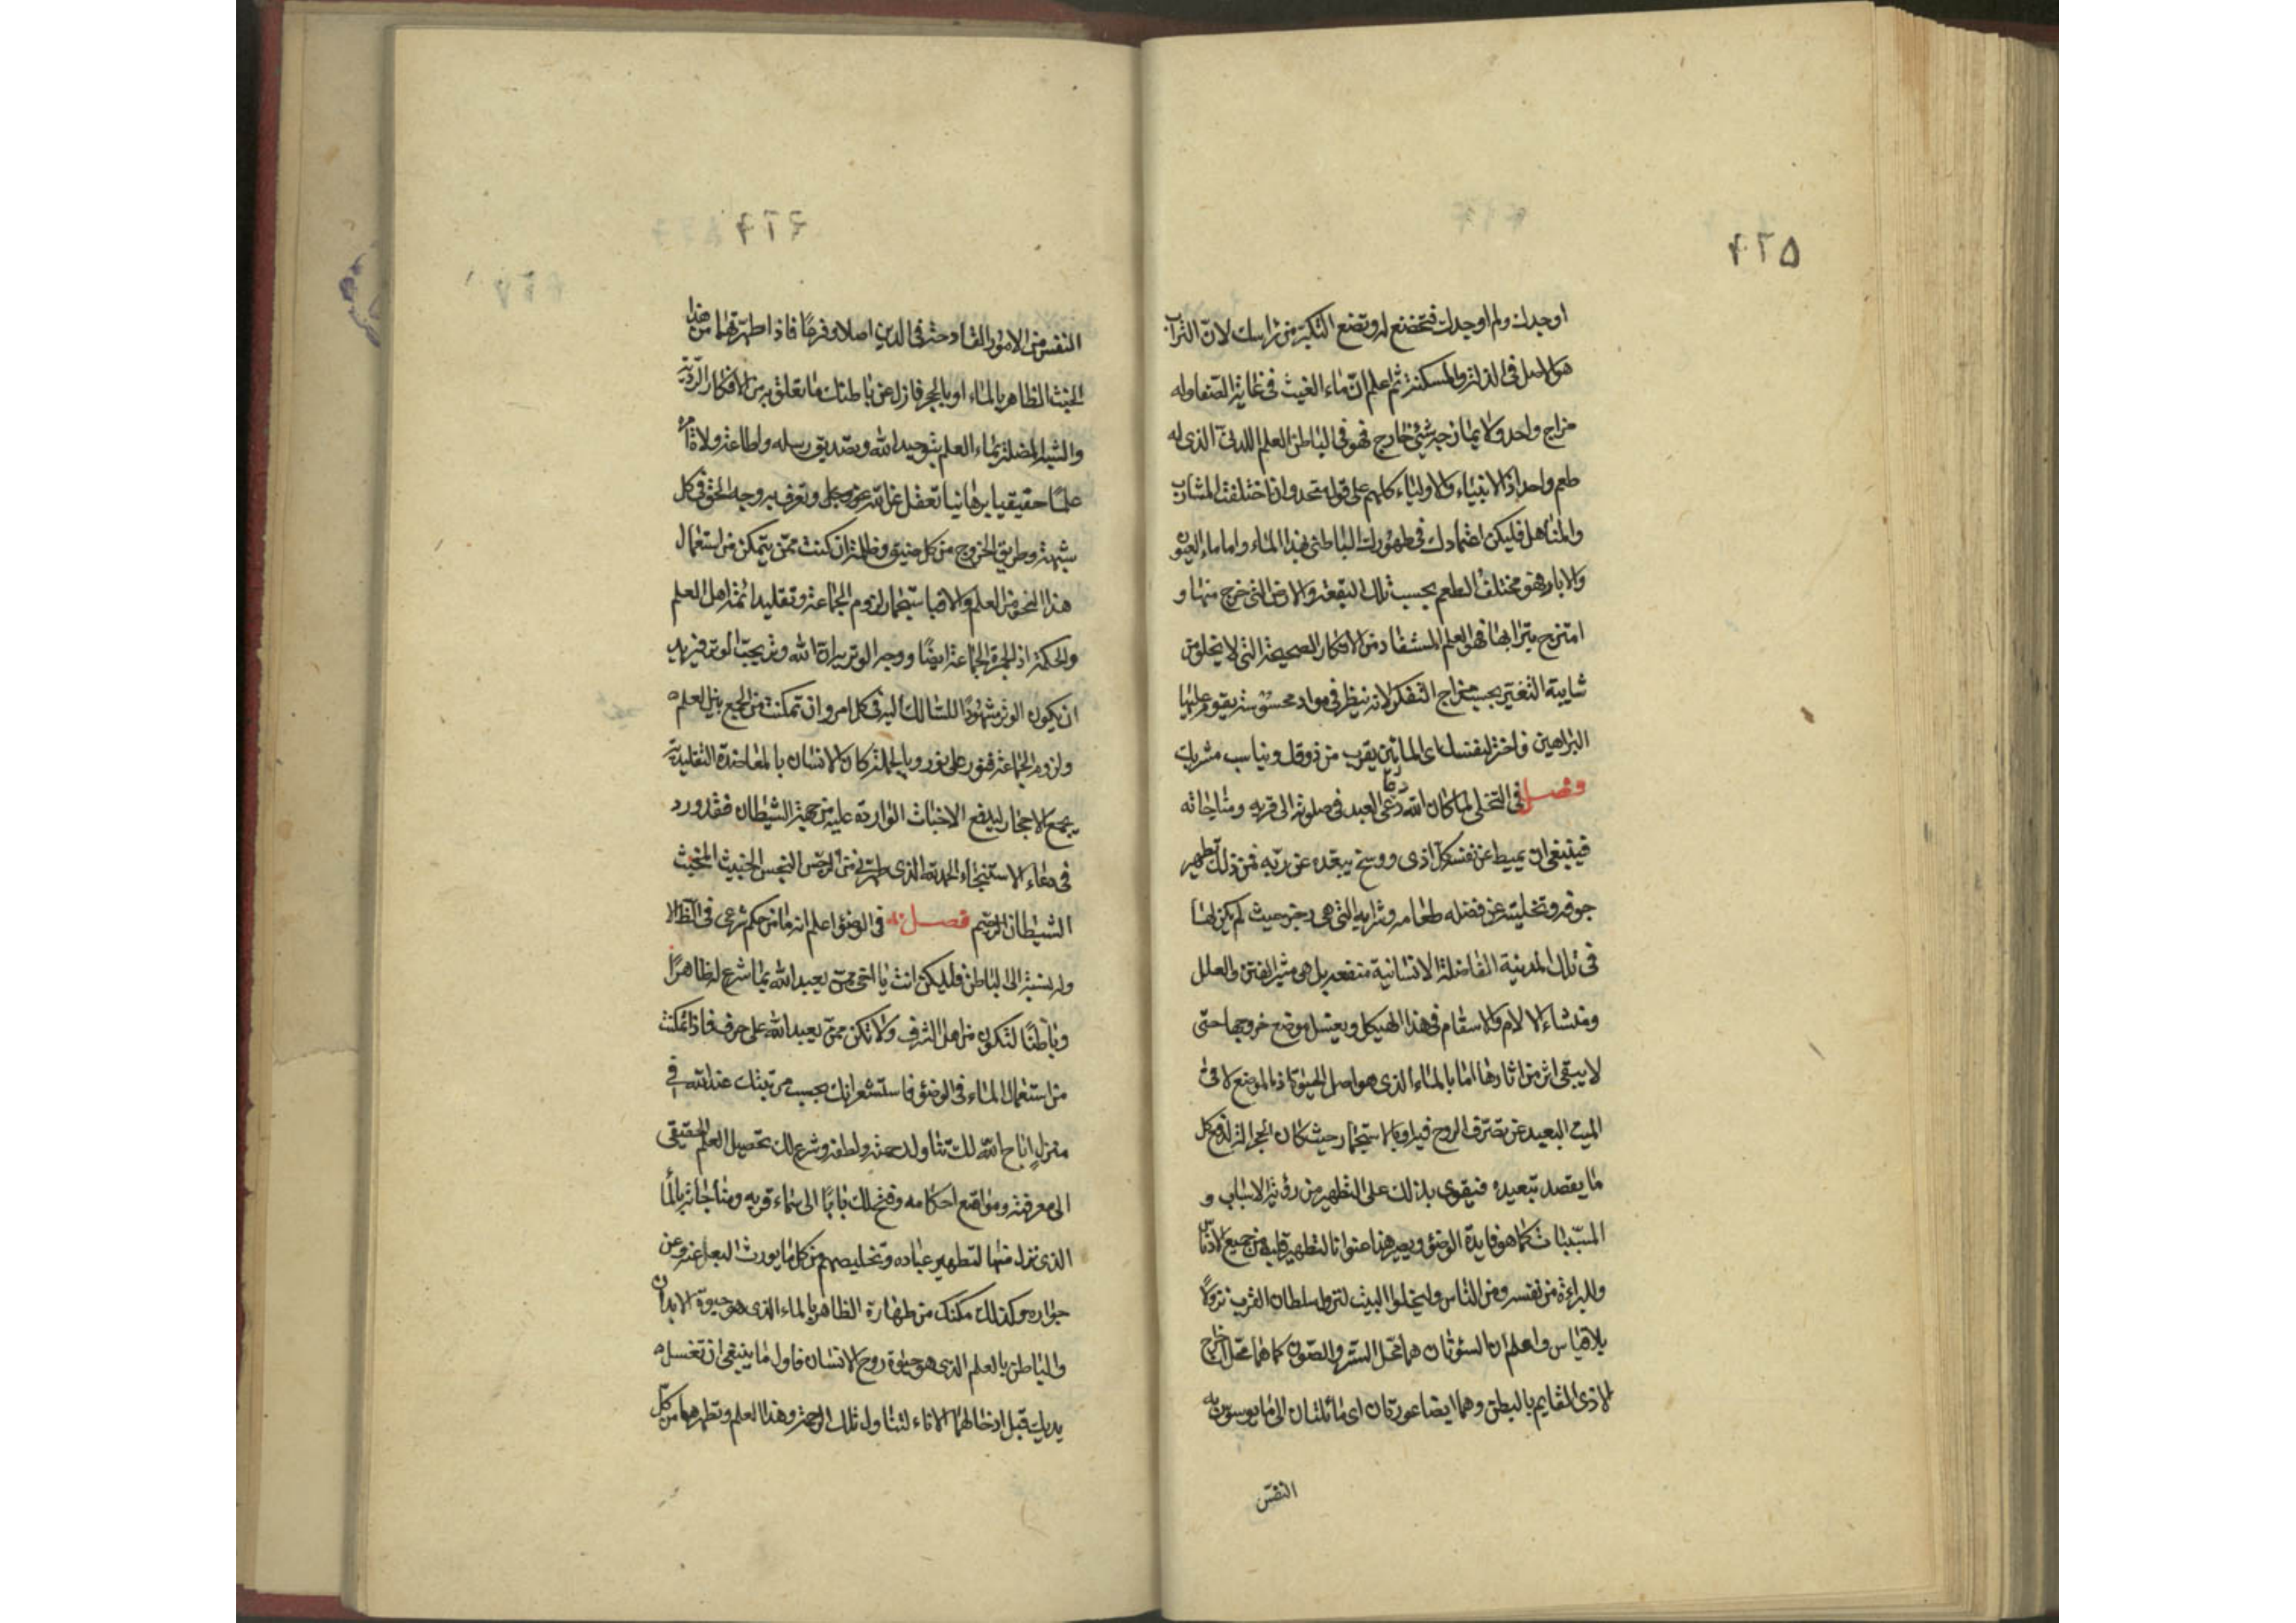 ٤٢٥
اوجدك ولم اوجدك فتخضع له وتضع التكبر من راسك لان التراب
هو الاصل في الذلة والمسكنة ثم اعلم ان ماء الغيث في غاية الصفا وله
مزاج واحد ولا يمازجه شئ خارج فهو في الباطن العلم اللدنى الذى له
طعم واحد اذ الانبياء والاولياء كلهم على قول متحد وان اختلفت المشارب
والمناهل فليكن اعتمادك في طهورك الباطنى بهذا الماء واما ماء العيون
والابار فهو مختلف الطعم بحسب تلك البقعة والارض التى خرج منها و
امتزج بترابها فهو العلم المستفاد من الافكار الصحيحة التى لا يخلو من
شايبة التغير بحسب مزاج التفكر لانه ينظر في مواد محسوسة يقوم عليها
البراهين فاختر لنفسك اى المائين يقرب من ذوقك ويناسب مشربك
فصل في التخلى لما كان الله دعى العبد في صلوته الى قربه ومناجاته
دعا
فينبغى ان يميط عن نفسه كل اذى ووسخ يبعده عن ربه فمن ذلك تطهير
جوفه وتخليته عن فضله طعامه وشرابه التى هى رجز حيث لم يكن لها
في تلك المدينة الفاضلة الانسانية منفعة بل هى مثير الفتن والعلل
ومنشاء الالام والاسقام في هذا الهيكل ويغسل موضع خروجها حتى
لا يبقى اثر من اثارها اما بالماء الذى هو اصل الحيوة اذ الموضع لا في
الميت البعيد عن تصرف الروح فيه او بالاستجمار حيث كان الحجر الة لدفع كل
ما يقصد تبعيده فيقوى بذلك على التطهير من رؤية الاسباب و
المسببات كما هو فايدة الوضؤ ويصير هذا عنوانا لتطهير قلبه من جميع الادناس
وللبراءة من نفسه ومن الناس وليخلوا البيت لنزول سلطان القرب نزولا
بلا قياس واعلم ان السؤتان هما محل الستر والصون كما هما محل اخراج
الاذى القايم بالبطن وهما ايضا عورتان اى مائلتان الى ما يوسوس به
النفس
٤٢٦
النفس من الامور القادحة في الدين اصلا وفرعا فاذا طهرتهما من هذا
الخبث الظاهر بالماء او بالحجر فازل عن باطنك ما تعلق به من الافكار الردية
والشبه المضلة بماء العلم بتوحيد الله وتصديق رسله واطاعة ولاة امره
علما حقيقيا برهانيا تعقل عن الله عز وجل وتعرف به وجه الحق في كل
شبهة وطريق الخروج من كل ضيق وظلمة ان كنت ممن يتمكن من استعمال
هذا النحو من العلم والا فباستجمار لزوم الجماعة وتقليد ائمة اهل العلم
والحكمة اذ الجمرة الجماعة ايضا ووجه الوتر يراد الله وتر يحب الوتر فيريد
ان يكون الوتر مشهودا للسالك اليه في كل امر وان تمكنت من الجمع بنيل العلم
ولزوم الجماعة فنور على نور وبالجملة كان الانسان بالمعاضدة التقليدية
يجمع الاحجار ليدفع الاخباث الواردة عليه من جهة الشيطان فقد ورد
في دعاء الاستنجاء الحمد لله الذى طهرنى من الرجس النجس الخبيث المخبث
الشيطان الرجيم فصل في الوضؤ اعلم انه ما من حكم شرعى في الظ الا
وله نسبة الى الباطن فليكن انت يا اخى ممن يعبد الله بما شرع له ظاهرا
وباطنا لتكون من اهل الشرف ولا تكن ممن يعبد الله على حرف فاذا تمكنت
من استعمال الماء في الوضؤ فاستشعر انك بحسب مرتبتك عند الله في
منزل اباح الله لك تناول رحمته ولطفه وشرع لك تحصيل العلم الحقيقى
الى معرفته ومواقع احكامه وفتح لك بابا الى سماء قربه ومناجاته بالماء
الذى نزل منها لتطهير عباده وتخليصهم من كل ما يورث البعد عنه وعن
جواره وكذلك مكنك من طهارة الظاهر بالماء الذى هو حيوة الابدان
والباطن بالعلم الذى هو حيوة روح الانسان فاول ما ينبغى ان تغسل
يديك قبل ادخالهما الاناء لتناول تلك الرحمة وهذا العلم وتطهرهما من كل